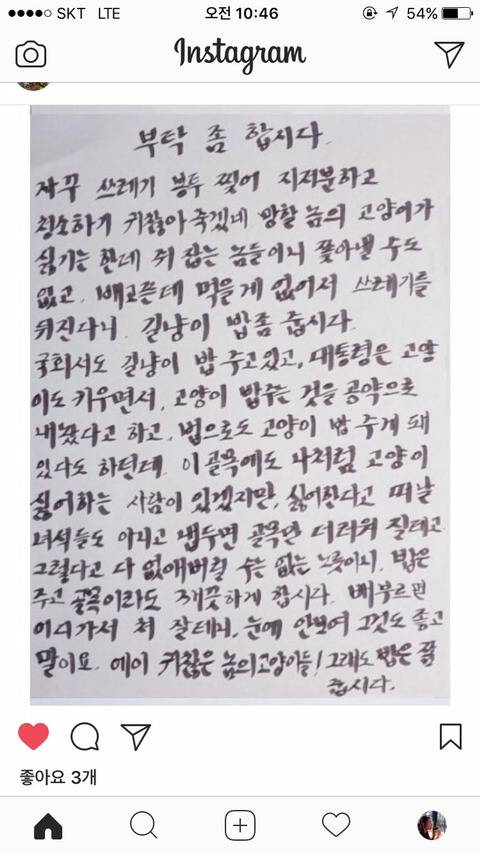 SKT LTE 오전 10:46 54%
Instagram
부탁 좀 합시다.
자꾸 쓰레기 봉투 찢어 지저분하고
청소하기 귀찮아 죽겠네 망할 놈의 고양이가
싫기는 한데 쥐 잡는 놈들이니 쫓아낼 수도
없고. 배고픈데 먹을게 없어서 쓰레기를
뒤진다니. 길냥이 밥좀 줍시다.
국회서도 길냥이 밥 주고있고, 대통령은 고양
이도 키우면서, 고양이 밥주는 것을 공약으로
내놨다고 하고, 법으로도 고양이 밥 주게 돼
있다도 하던데. 이 골목에도 나처럼 고양이
싫어하는 사람이 있겠지만, 싫어한다고 떠날
녀석들도 아니고 냅두면 골목만 더러워 질테고.
그렇다고 다 없애버릴 수는 없는 노릇이니, 밥은
주고 골목이라도 깨끗하게 합시다. 배부르면
어디가서 쳐 잘테니, 눈에 안보여 그것도 좋고
말이요. 에이 귀찮은 놈의고양이들! 그래도 밥은 쫌
줍시다.
좋아요 3개